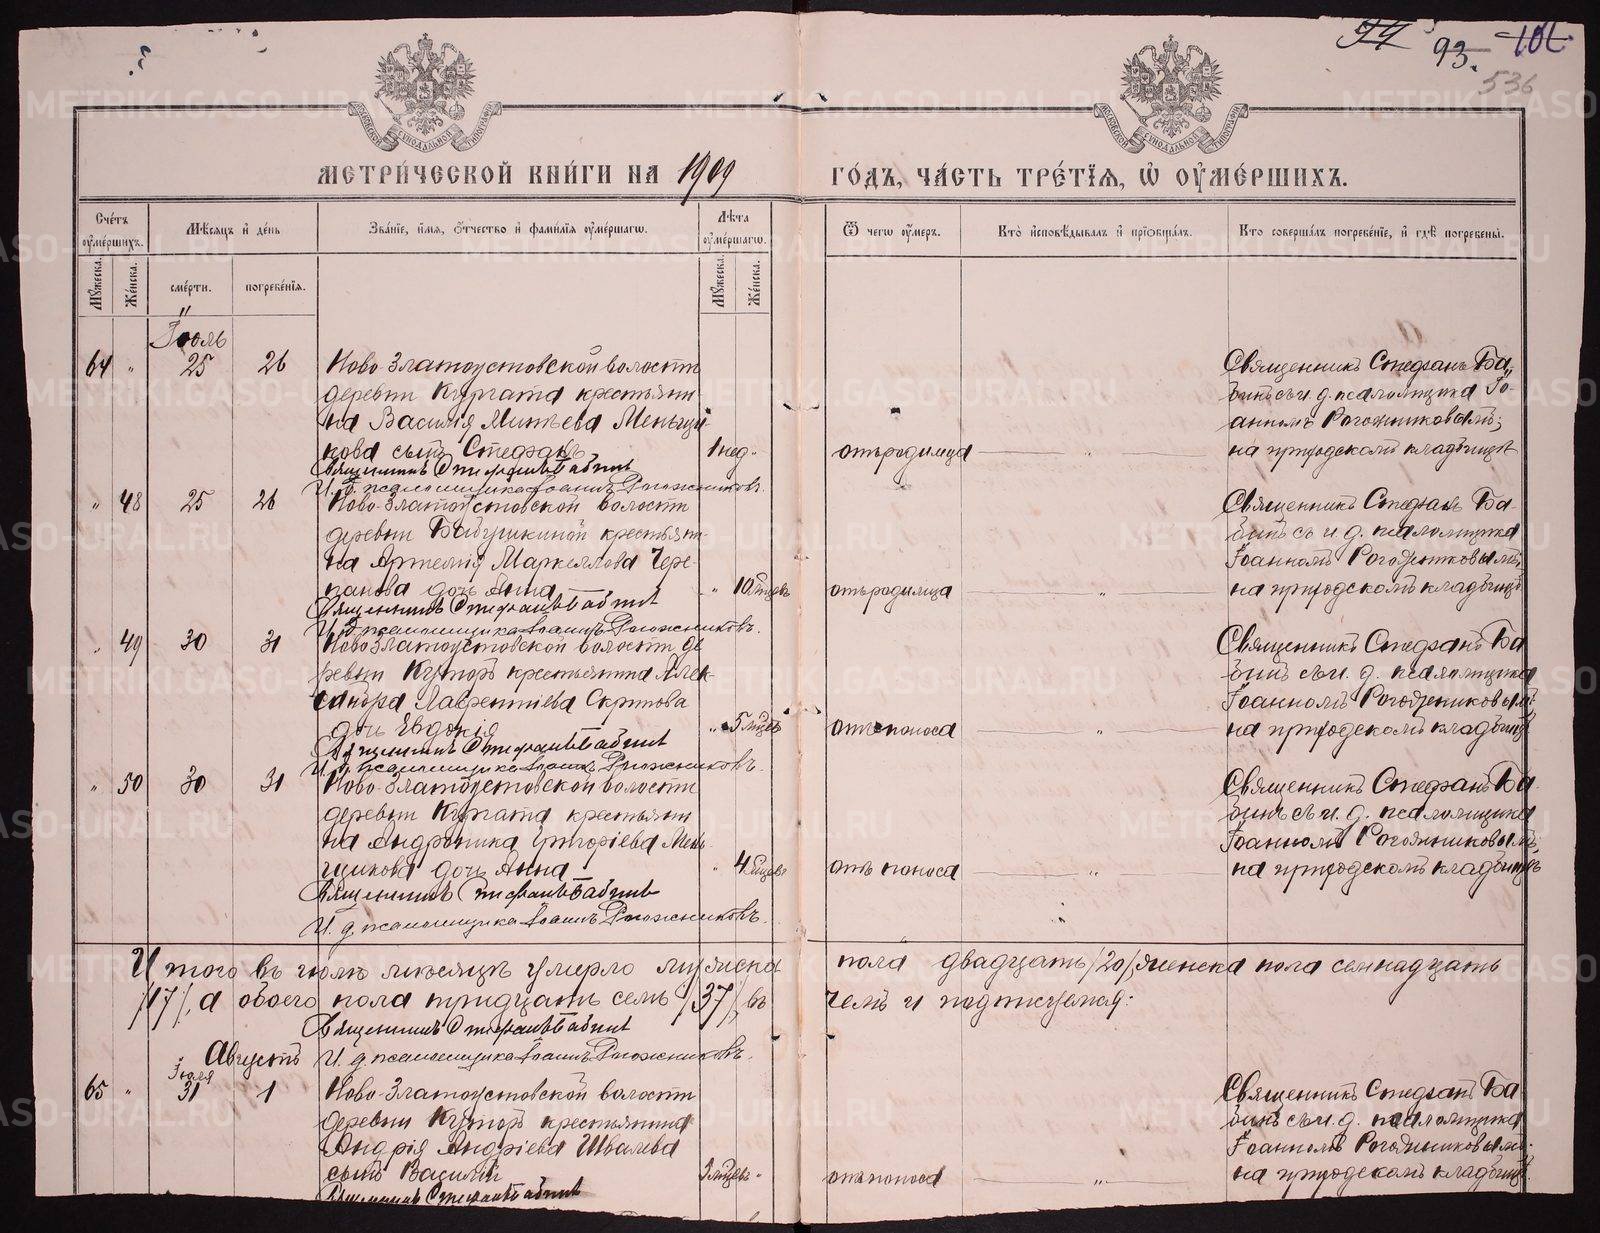 93.
536
МЕТРИ́ЧЕСКОЙ КНИ́ГИ НА 1909 ГО́ДЪ, ЧА́СТЬ ТРЕ́ТІЯ, Ѡ ОУМЕ́РШИХЪ.
Сче́тъ оумершихъ.
Мѣсяцъ и де́нь
Зва́ніе, и́мя, о́тчество и фами́лія оуме́ршагѡ.
Лѣта оуме́ршагѡ.
Ѿ чегѡ оу́меръ.
Кто̀ исповѣ́дывалъ и пріобща́лъ.
Кто соверша́лъ погребе́ніе, и гдѣ̀ погребены̀.
Му́жеска.
Же́нска.
сме́рти.
погребе́нія.
Му́жеска.
Же́нска.
Іюль
64 " 25 26 Ново-Златоустовской волости
деревни Кургата крестьяни-
на Василія Митьева Меньщи-
кова сынъ Стефанъ 1 нед. отъ родимца "
Священникъ Стефанъ Ба-
бинъ съ и. д. псаломщика Іо-
анномъ Рогожниковымъ;
на приходскомъ кладбищѣ
Священникъ Стефанъ Бабинъ
И. д. псаломщика Іоаннъ Рогожниковъ.
" 48 25 26 Ново-Златоустовской волости
деревни Бабушкиной крестьяни-
на Артемія Маркеллова Чере-
панова дочь Анна " 10 мѣсцевъ отъ родимца "
Священникъ Стефанъ Ба-
бинъ съ и. д. псаломщика
Іоанномъ Рогожниковымъ,
на приходскомъ кладбищѣ
Священникъ Стефанъ Бабинъ
И. д. псаломщика Іоаннъ Рогожниковъ.
" 49 30 31 Ново-Златоустовской волости де
ревни Куморъ крестьянина Алек-
сандра Лаврентіева Скрипова
дочь Евдокія " 5 мѣсцевъ отъ поноса "
Священникъ Стефанъ Ба
бинъ съ и. д. псаломщика
Іоанномъ Рогожниковымъ
на приходскомъ кладбищѣ
Священникъ Стефанъ Бабинъ
И. д. псаломщика Іоаннъ Рогожниковъ.
" 50 30 31 Ново-Златоустовской волости
деревни Кургата крестьяни
на Андроника Григоріева Мень
щикова дочь Анна " 4 мѣсцевъ отъ поноса "
Священникъ Стефанъ Ба
бинъ съ и. д. псаломщика
Іоанномъ Рогожниковымъ;
на приходскомъ кладбищѣ
Священникъ Стефанъ Бабинъ
И. д. псаломщика Іоаннъ Рогожниковъ.
И того въ іюлѣ мѣсяцѣ умерло мужеска пола двадцать /20/, женска пола семнадцать
/17/, а обоего пола тридцать семь /37/, въ чемъ и подписуемся:
Священникъ Стефанъ Бабинъ
И. д. псаломщика Іоаннъ Рогожниковъ.
Августъ
Іюля
65 " 31 1 Ново-Златоустовской волости
деревни Куморъ крестьянина
Андрія Андріева Швалева
сынъ Василій мѣсцевъ " отъ поноса "
Священникъ Стефанъ Ба
бинъ съ и. д. псаломщика
Іоанномъ Рогожниковымъ
на приходскомъ кладбищѣ.
Священникъ Стефанъ Бабинъ
METRIKI.GASO-URAL.RU